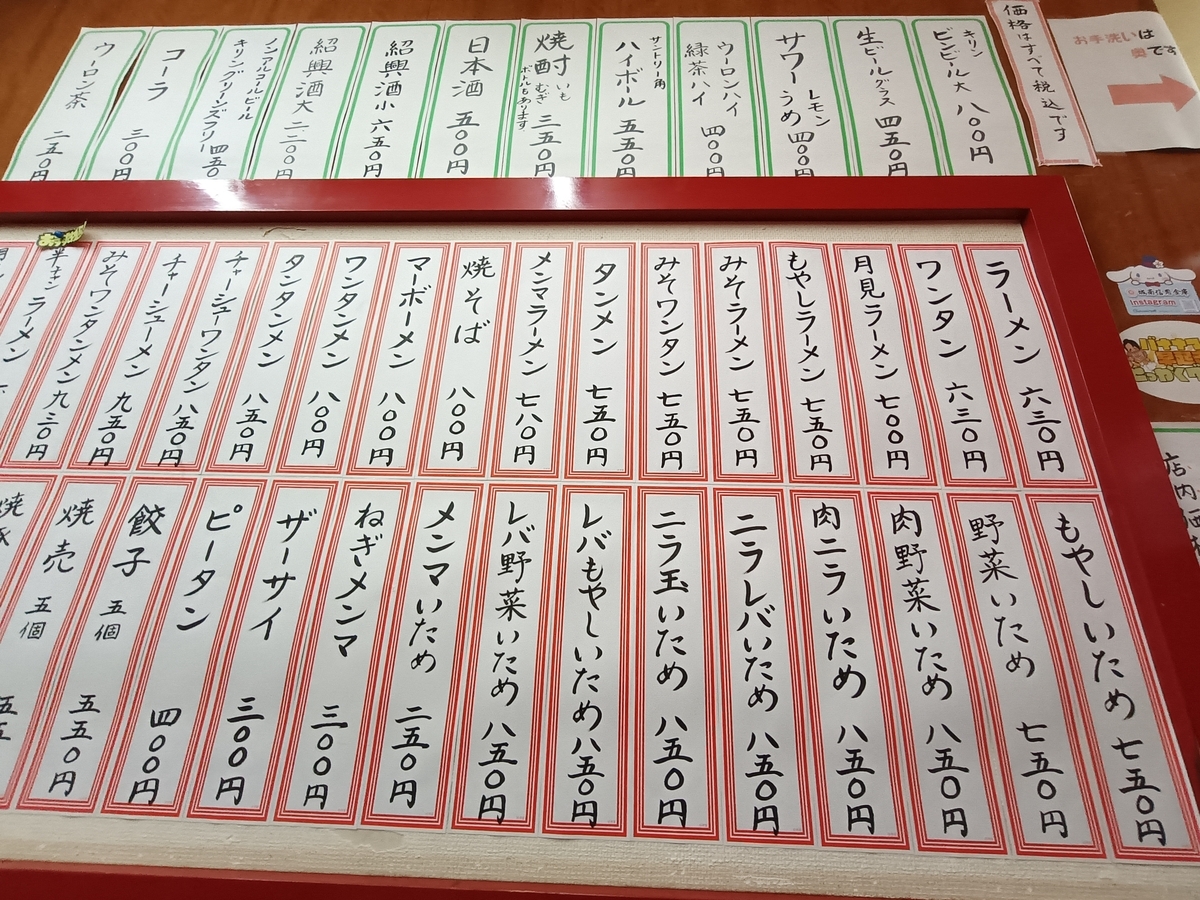 お手洗いは
奥です
価格はすべて税込です
キリン
ビンビール大 八〇〇円
生ビールグラス 四五〇円
サワー レモン うめ 四〇〇円
ウーロンハイ
緑茶ハイ 四〇〇円
サントリー角
ハイボール 五五〇円
焼酎 いも むぎ 三五〇円
ボトルもあります
日本酒 五〇〇円
紹興酒小 六五〇円
紹興酒大 二二〇〇円
ノンアルコールビール
キリングリーンズフリー 四五〇
コーラ 三〇〇円
ウーロン茶 二五〇円
ラーメン 六三〇円
ワンタン 六三〇円
月見ラーメン 七〇〇円
もやしラーメン 七五〇円
みそラーメン 七五〇円
みそワンタン 七五〇円
タンメン 七五〇円
メンマラーメン 七八〇円
焼そば 八〇〇円
マーボーメン 八〇〇円
ワンタンメン 八〇〇円
タンタンメン 八五〇円
チャーシューワンタン 八五〇円
チャーシューメン 八五〇円
みそワンタンメン 九五〇円
半チャンラーメン 九三〇円
もやしいため 七五〇円
野菜いため 七五〇円
肉野菜いため 八五〇円
肉ニラいため 八五〇円
ニラレバいため 八五〇円
ニラ玉いため 八五〇円
レバもやしいため 八五〇円
レバ野菜いため 八五〇円
メンマいため 二五〇円
ねぎメンマ 三〇〇円
ザーサイ 三〇〇円
ピータン 三〇〇円
餃子 五個 四〇〇円
焼売 五個 五五〇円
五個
Instagram
店内